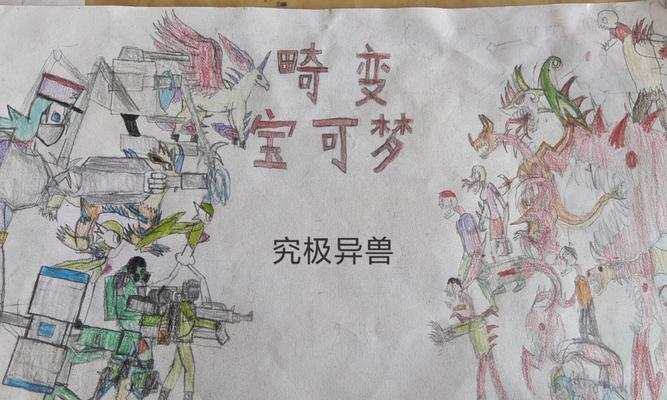 畸变
宝可梦
究极异兽